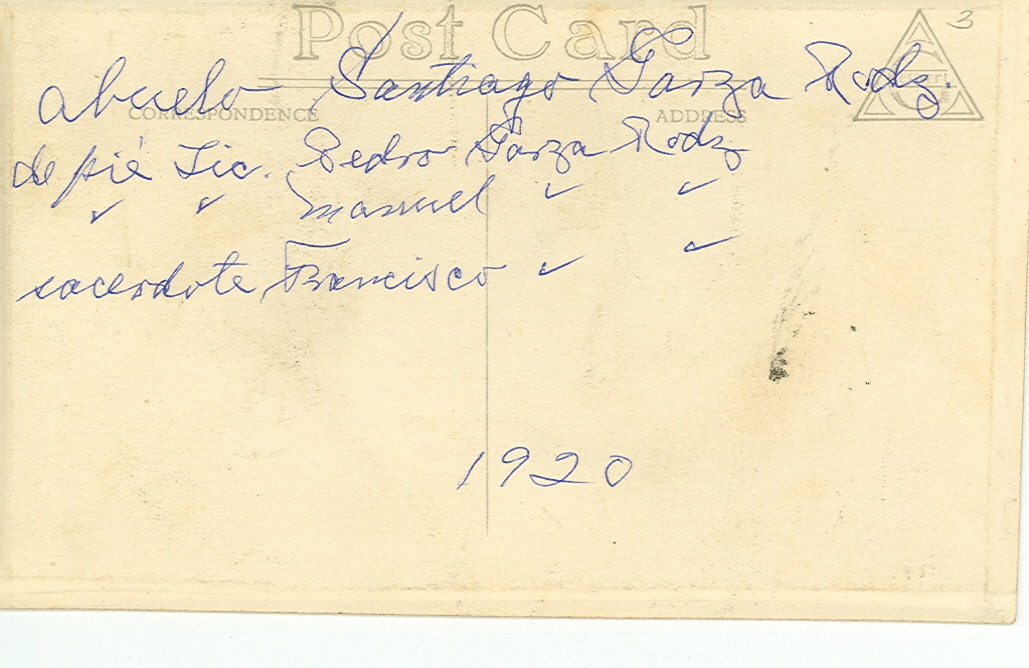 Post Card
3
CORRESPONDENCE
ADDRESS
abuelo Santiago Garza Rodz.
de pié Lic. Pedro Garza Rodz
" " Manuel " "
sacerdote Francisco " "
1920